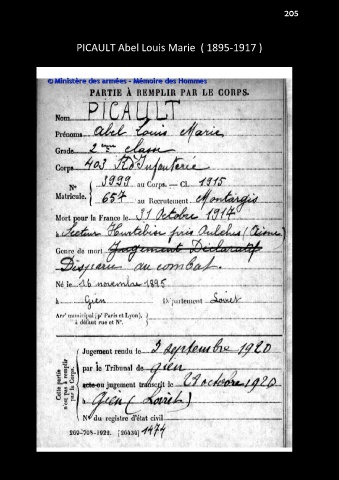 205
PICAULT Abel Louis Marie ( 1895-1917 )
© Ministère des armées - Mémoire des Hommes
PARTIE À REMPLIR PAR LE CORPS.
Nom PICAULT
Prénoms Abel Louis Marie
Grade 2ème classe
Corps 403 Rt d'Infanterie
N° 3999 au Corps. — Cl. 1915
Matricule. 657 au Recrutement Montargis
Mort pour la France le 31 Octobre 1917
à Secteur Hurtebise près Vulches (Aisne)
Genre de mort Jugement Déclaratif
Disparu au combat.
Né le 16 novembre 1895
à Gien Département Loiret
Arr' municipal (p' Paris et Lyon),
à défaut rue et N°.
Cette partie
n'est pas à remplir
par le Corps.
Jugement rendu le 3 septembre 1920
par le Tribunal de gien
acte ou jugement transcrit le 29 octobre 1920
à Gien (Loiret)
N° du registre d'état civil
269-708-1922. [26434] 1474